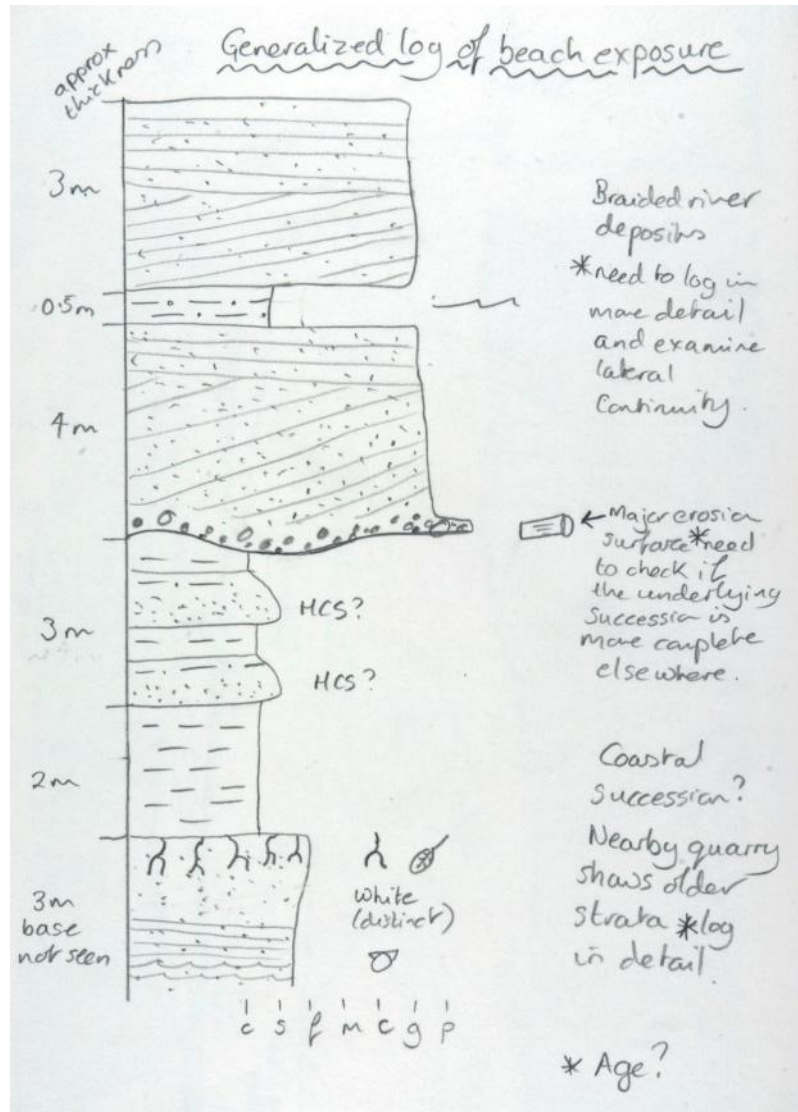 Generalized log of beach exposure
approx
thickness
3m
Braided river
deposits
*need to log in
more detail
and examine
lateral
continuity.
0.5m
4m
←Major erosion
surface *need
to check if
the underlying
succession is
more complete
elsewhere.
3m
HCS?
HCS?
2m
Coastal
succession?
Nearby quarry
shows older
strata *log
in detail
3m
base
not seen
White
(distinct)
c s f m c g p
* Age?